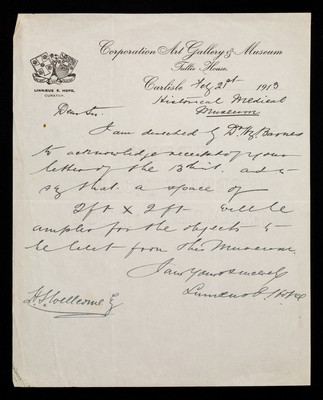 Corporation Art Gallery & Museum
Tullie House,
LINNÆUS E. HOPE,
CURATOR.
Carlisle Feb 21st 1913
Historical Medical
Museum
Dear Sir.
I am directed by Dr Barnes
to acknowledge receipt of your
letter of the 13th inst. and to
say that a space of
2ft x 2ft will be
ample for the objects to
be lent from this Museum.
I am yours sincerely
Linnaeus E. Hope
H. S. Wellcome Esq